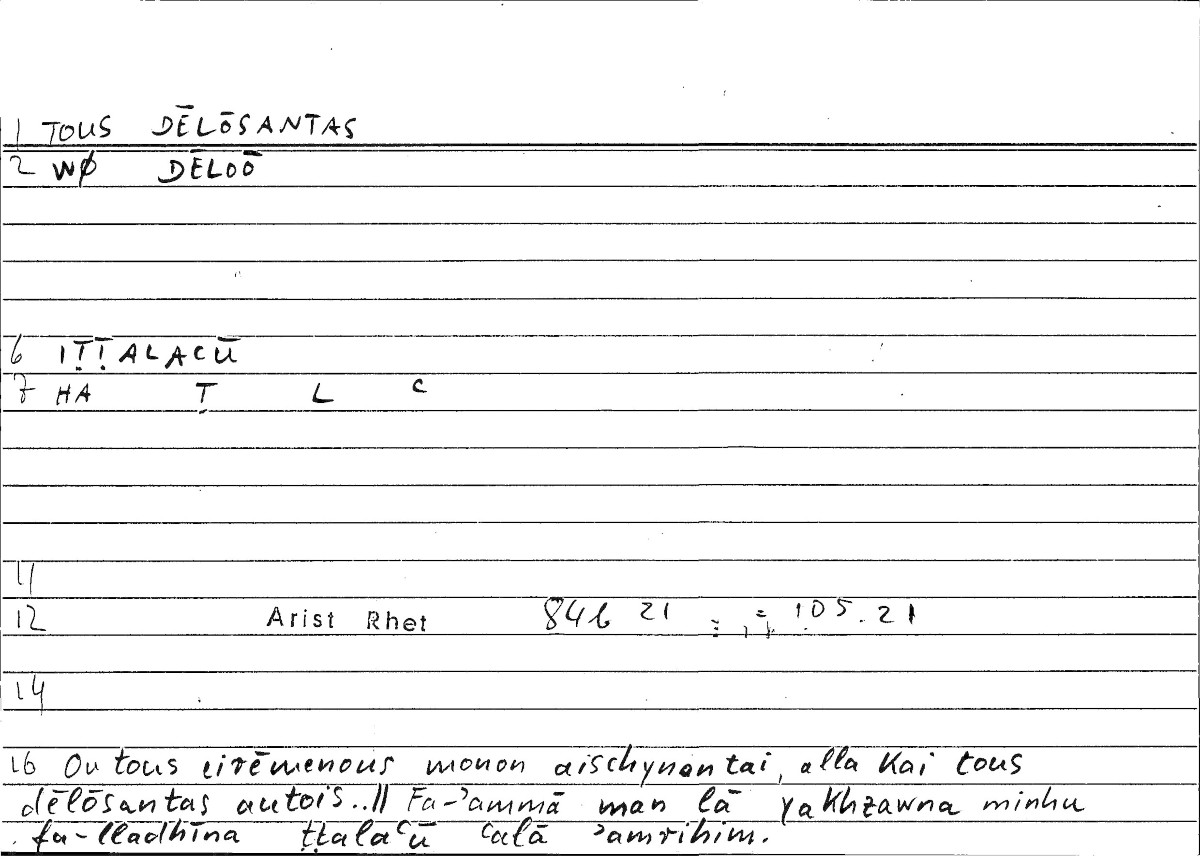 1 TOUS DĒLŌSANTAS
2 WØ DĒLOŌ
6 IṬṬALAcŪ
7 HA Ṭ L c
11
12 Arist Rhet 84b 21 = 105.21
14
16 Ou tous eirēmenous monon aischynontai, alla Kai tous
dēlōsantas autois..|| Fa-ʾammā man lā yaKhzawna minhu
fa-lladhīna ṭṭalaʿū ʿalā ʾamrihim.